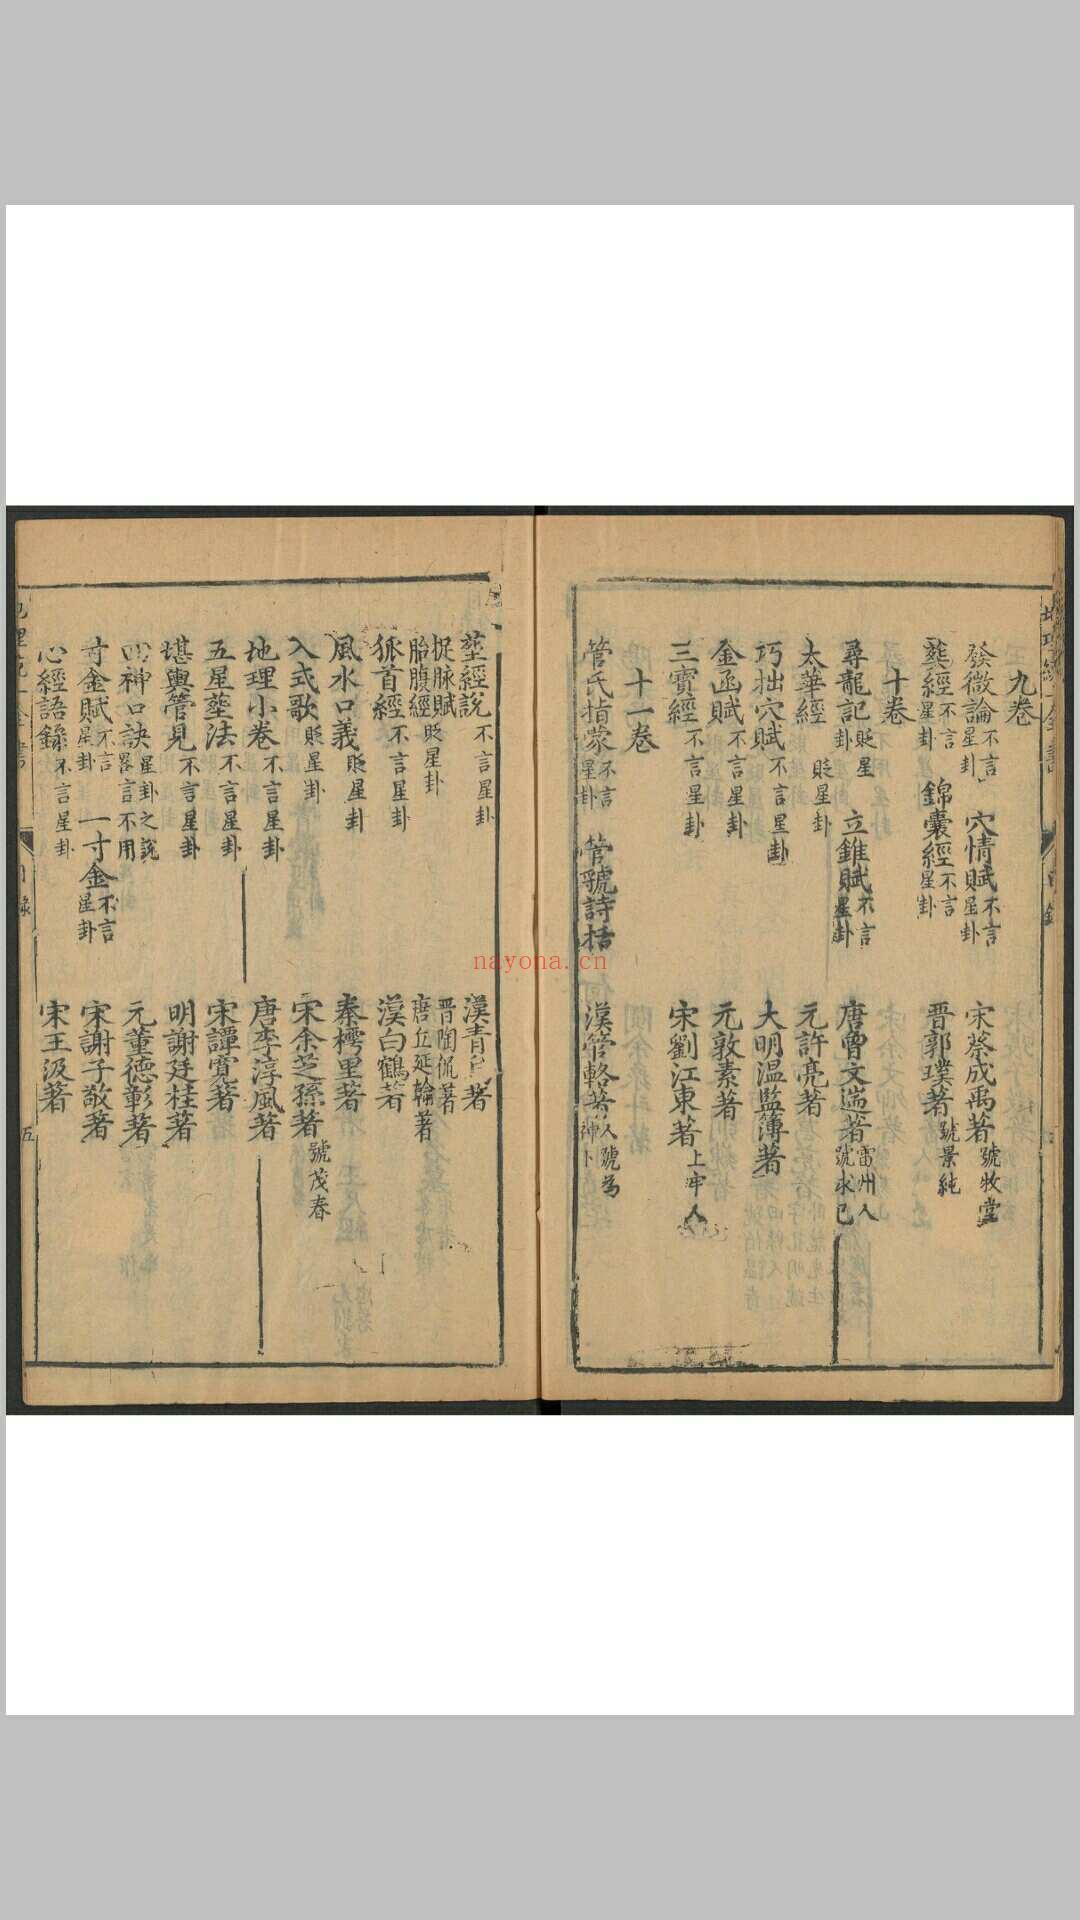 九卷
發微論不言星卦 穴情賦不言星卦 宋蔡成禹著號牧堂
葬經不言星卦 錦囊經不言星卦 晋郭璞著號景純
十卷
尋龍記貶星卦 立錐賦不言星卦 唐曾文遄著雷州人號求己
太華經貶星卦 元許亮著
巧拙穴賦不言星卦 大明温監簿著
金函賦不言星卦 元敦素著
三寶經不言星卦 宋劉江東著上牢人
十一卷
管氏指蒙不言星卦 管虢詩括 漢管輅著人號為神卜
葬經說不言星卦 漢青 著
捉脉賦 晋陶侃著
胎腹經貶星卦 唐丘延翰著
狐首經不言星卦 漢白鶴著
風水口義貶星卦 秦樗里著
入式歌貶星卦 宋余芝孫著號茂春
地理小卷不言星卦 唐李淳風著
五星葬法不言星卦 宋譚寬著
堪輿管見不言星卦 明謝廷柱著
四神口訣星卦之說畧言不用 元董德彰著
寸金賦不言星卦 一寸金不言星卦 宋謝子敬著
心經語錄不言星卦 宋王汲著
五
nayona.cn